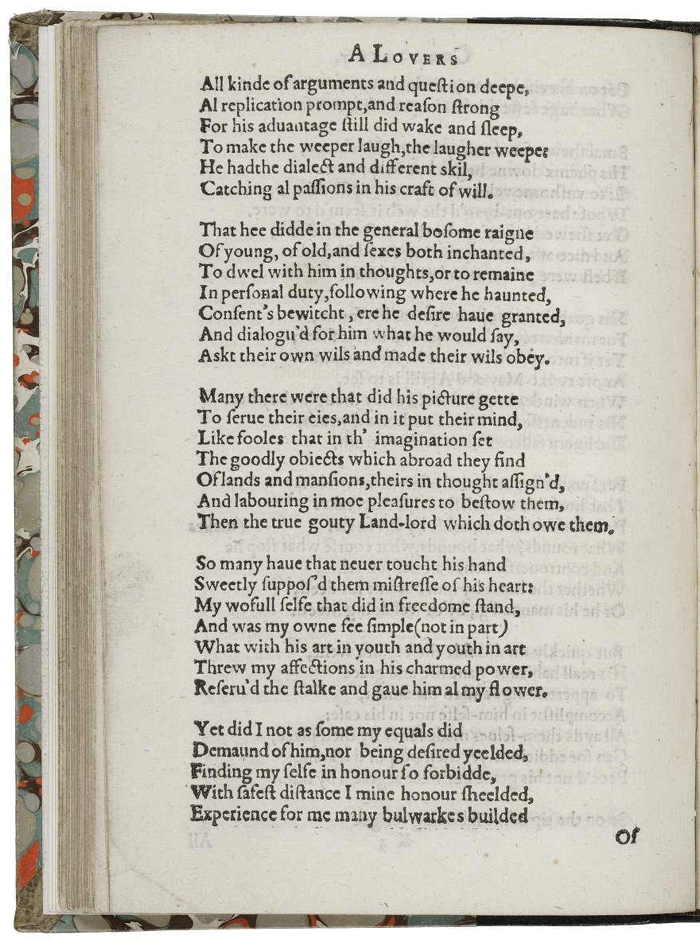 A LOVERS
All kinde of arguments and queſtion deepe,
Al replication prompt,and reaſon ſtrong
For his aduantage ſtill did wake and ſleep,
To make the weeper laugh,the laugher weepe:
He hadthe dialect and different skil,
Catching al paſſions in his craft of will.
That hee didde in the general boſome raigne
Of young, of old,and ſexes both inchanted,
To dwel with him in thoughts,or to remaine
In perſonal duty,following where he haunted,
Conſent's bewitcht , ere he deſire haue granted,
And dialogu'd for him what he would ſay,
Askt their own wils and made their wils obey.
Many there were that did his picture gette
To ſerue their eies,and in it put their mind,
Like fooles that in th' imagination ſet
The goodly obiects which abroad they find
Of lands and manſions,theirs in thought aſſign'd,
And labouring in moe pleaſures to beſtow them,
Then the true gouty Land-lord which doth owe them.
So many haue that neuer toucht his hand
Sweetly ſuppoſ'd them miſtreſſe of his heart:
My wofull ſelfe that did in freedome ſtand,
And was my owne fee ſimple(not in part)
What with his art in youth and youth in art
Threw my affections in his charmed power,
Reſeru'd the ſtalke and gaue him al my flower.
Yet did I not as ſome my equals did
Demaund of him,nor being deſired yeelded,
Finding my ſelfe in honour ſo forbidde,
With ſafeſt diſtance I mine honour ſheelded,
Experience for me many bulwarkes builded
Of